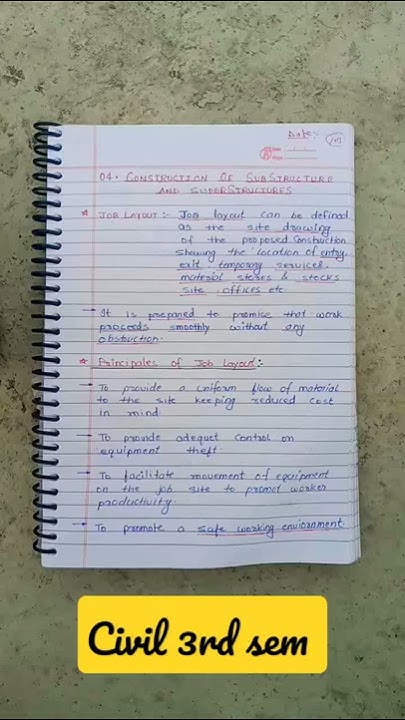 Date:
04. CONSTRUCTION OF SUBSTRUCTURE
AND SUPERSTRUCTURES
* JOB LAYOUT :- Job layout can be defined
as the site drawing
of the proposed Construction
showing the location of entry,
exit, temporary services,
material stores & stocks
site offices etc
→ It is prepared to promise that work
proceeds smoothly without any
obstruction.
* Principales of Job Layout :-
→ To provide a uniform flow of material
to the site keeping reduced cost
in mind.
→ To provide adequet control on
equipment theft.
→ To facilitate movement of equipment
on the job site to promot worker
productivity.
→ To promote a safe working enviornment
Civil 3rd sem